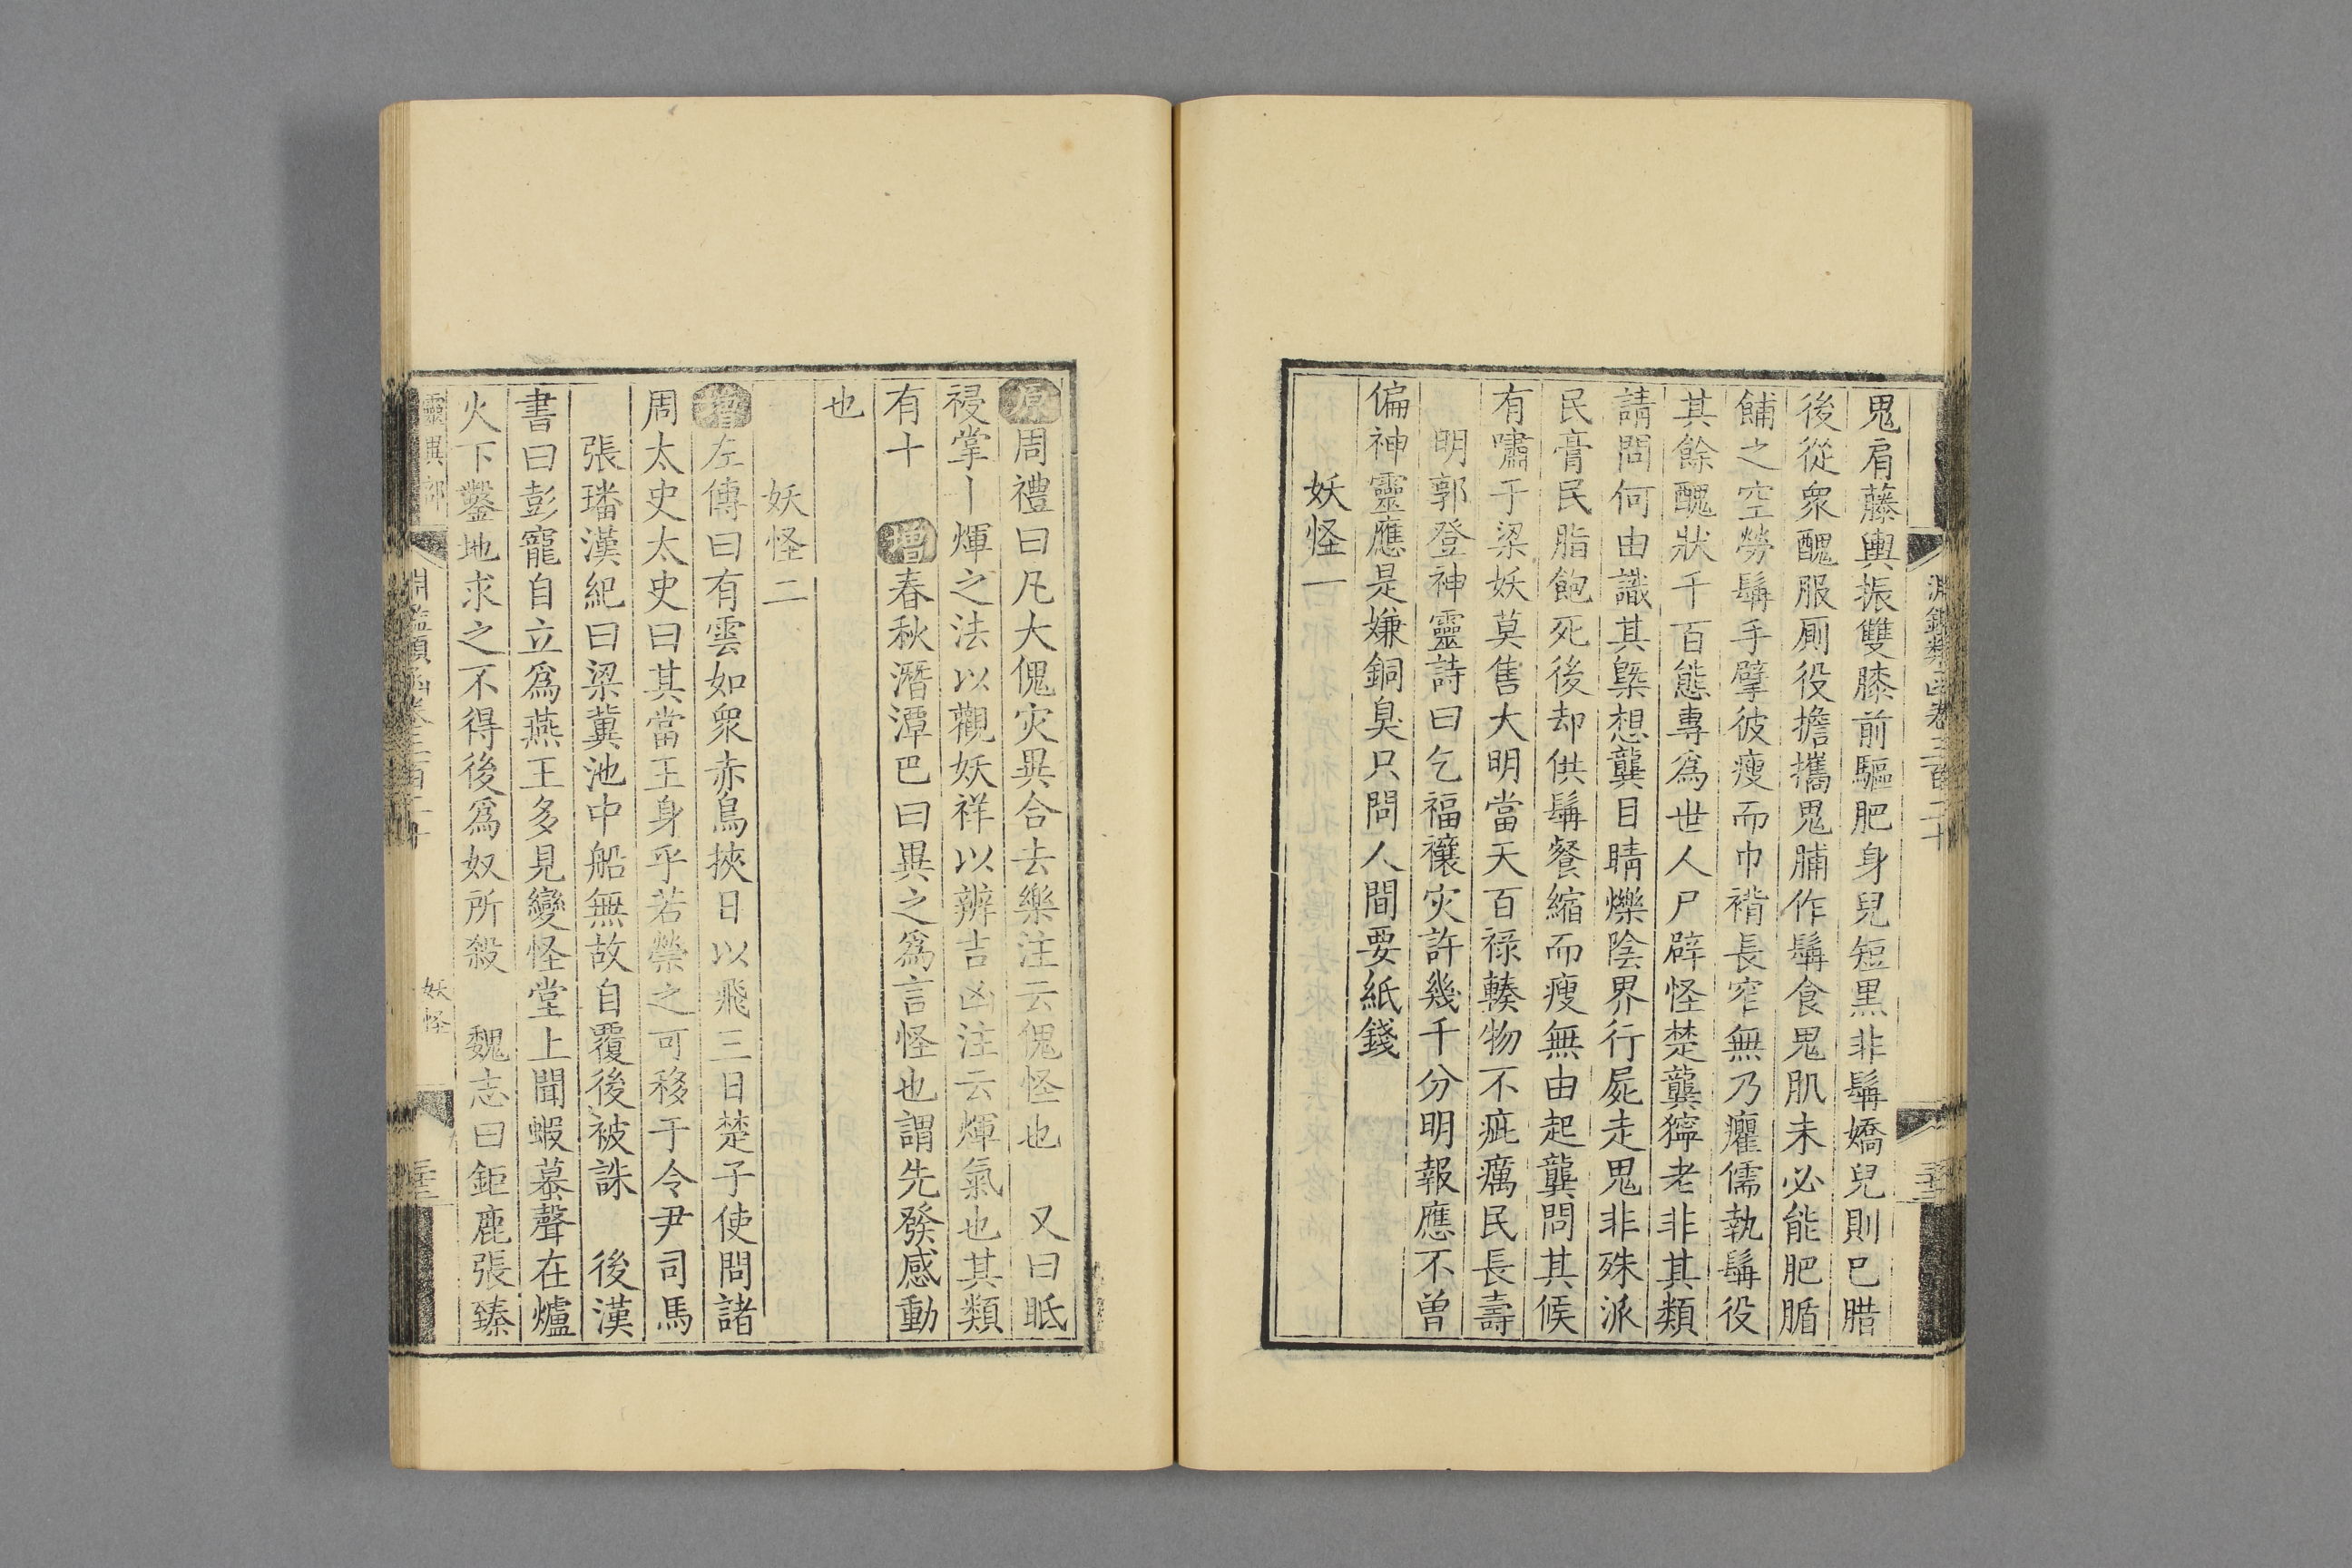 淵鑑類函卷三百二十
鬼肩藤輿振雙膝前驅肥身兒短黒非髯嬌兒則巳腊
後從衆醜服厠役擔攜鬼脯作髯食鬼肌未必能肥腯
餔之空勞髯手擘彼瘦而巾褙長窄無乃癯儒執髯役
其餘醜狀千百態專爲世人尸辟怪楚龔獰老非其類
請問何由識其槩想龔目睛爍陰界行屍走鬼非殊派
民膏民脂飽死後却供髯餐縮而瘦無由起龔問其候
有嘯于梁妖莫售大明當天百祿輳物不疵癘民長壽
明郭登神靈詩曰乞福禳灾許幾千分明報應不曽
偏神靈應是嫌銅臭只問人間要紙錢
妖怪一
原周禮曰凡大傀灾異合去樂注云傀怪也 又曰眂
祲掌丨煇之法以觀妖祥以辨吉凶注云煇氣也其類
有十 増春秋潛潭巴曰異之爲言怪也謂先發感動
也
妖怪二
増左傳曰有雲如衆赤鳥挾日以飛三日楚子使問諸
周太史太史曰其當王身乎若禜之可移于令尹司馬
張璠漢紀曰梁冀池中船無故自覆後被誅 後漢
書曰彭寵自立爲燕王多見變怪堂上聞蝦蟇聲在爐
火下鑿地求之不得後爲奴所殺 魏志曰鉅鹿張臻
靈異部 淵鑑類函卷三百二十 妖怪